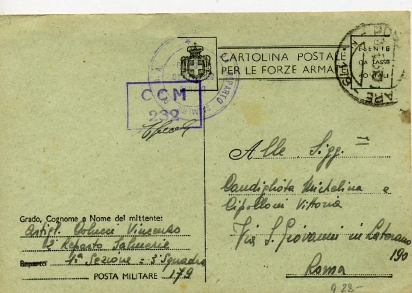 CARTOLINA POSTALE
PER LE FORZE ARMATE
ESENTE
DA TASSE
POSTALI
CCM
232
Alle Sigg.
Candigliota Michelina e
Cipolloni Vittoria
Via S. Giovanni in Laterano
190
Roma
Grado, Cognome e Nome del mittente:
Artigl. Colucci Vincenzo
12° Reparto Salmerie
Reparto 1ª Sezione = 3ª Squadra
POSTA MILITARE 179